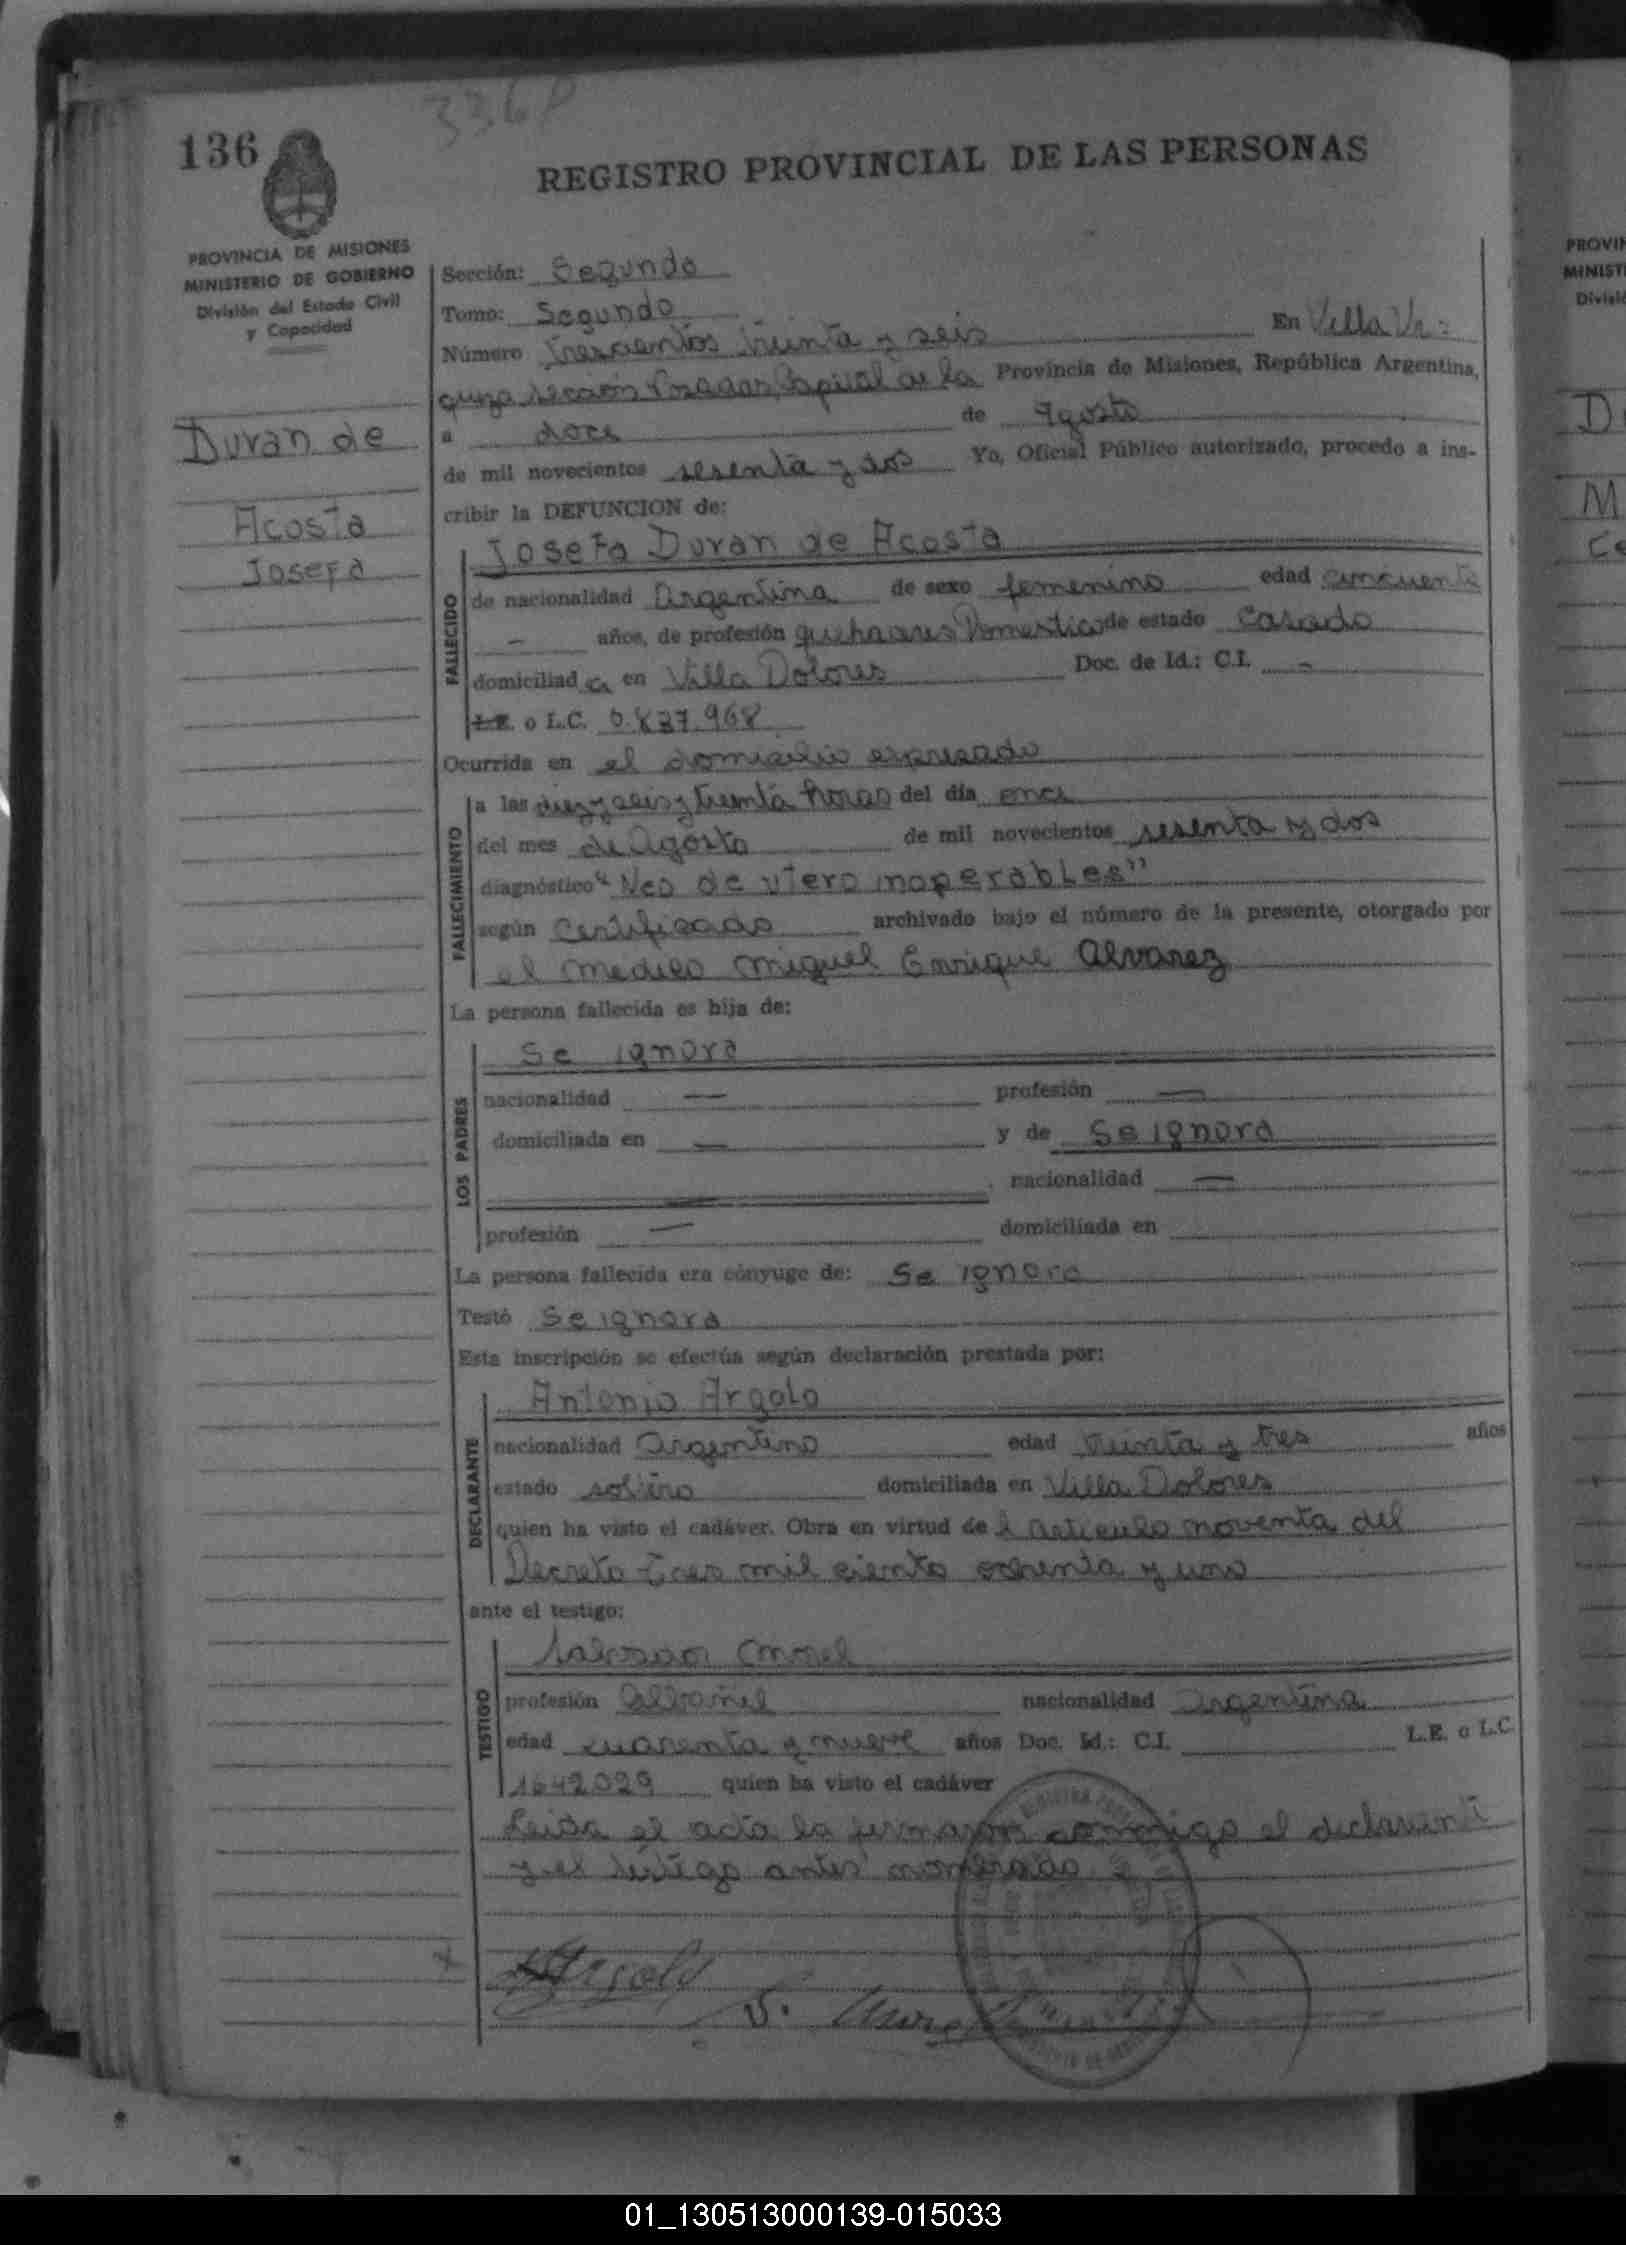 336 P
136
REGISTRO PROVINCIAL DE LAS PERSONAS
PROVINCIA DE MISIONES
MINISTERIO DE GOBIERNO
División del Estado Civil
y Capacidad
Duran de
Acosta
Josefa
Sección: Segundo
Tomo: Segundo
Número trescientos treinta y seis En Villa Ur=
quiza seccion Posadas, Capital de la Provincia de Misiones, República Argentina,
a doce de Agosto
de mil novecientos sesenta y dos Yo, Oficial Público autorizado, procedo a ins-
cribir la DEFUNCION de:
FALLECIDO
Josefa Duran de Acosta
de nacionalidad Argentina de sexo femenino edad cincuenta
- años, de profesión quehaceres Domestica de estado Casado
domiciliad a en Villa Dolores Doc. de Id.: C.I. -
L.E. o L.C. 0.837.968
Ocurrida en el domicilio expresado
FALLECIMIENTO
a las diez y seis y treinta horas del día once
del mes de Agosto de mil novecientos sesenta y dos
diagnóstico "Neo de utero inoperables"
según Certificado archivado bajo el número de la presente, otorgado por
el medico Miguel Enrique Alvarez
La persona fallecida es hija de:
LOS PADRES
Se ignora
nacionalidad — profesión —
domiciliada en — y de Se ignora
— nacionalidad —
profesión — domiciliada en
La persona fallecida era cónyuge de: Se ignora
Testó Se ignora
Esta inscripción se efectúa según declaración prestada por:
DECLARANTE
Antonio Argolo
nacionalidad Argentino edad treinta y tres años
estado soltero domiciliada en Villa Dolores
quien ha visto el cadáver. Obra en virtud de l articulo noventa del
Decreto Tres mil ciento ochenta y uno
ante el testigo:
TESTIGO
Salvador Morel
profesión Albañil nacionalidad Argentina
edad cuarenta y nueve años Doc. Id.: C.I. L.E. o L.C.
1642029 quien ha visto el cadáver
Leida el acta la firmaron conmigo el declarante
y el testigo antes nombrado
Argolo
S. Morel
PROVIN
MINIST
Divisi
01_130513000139-015033